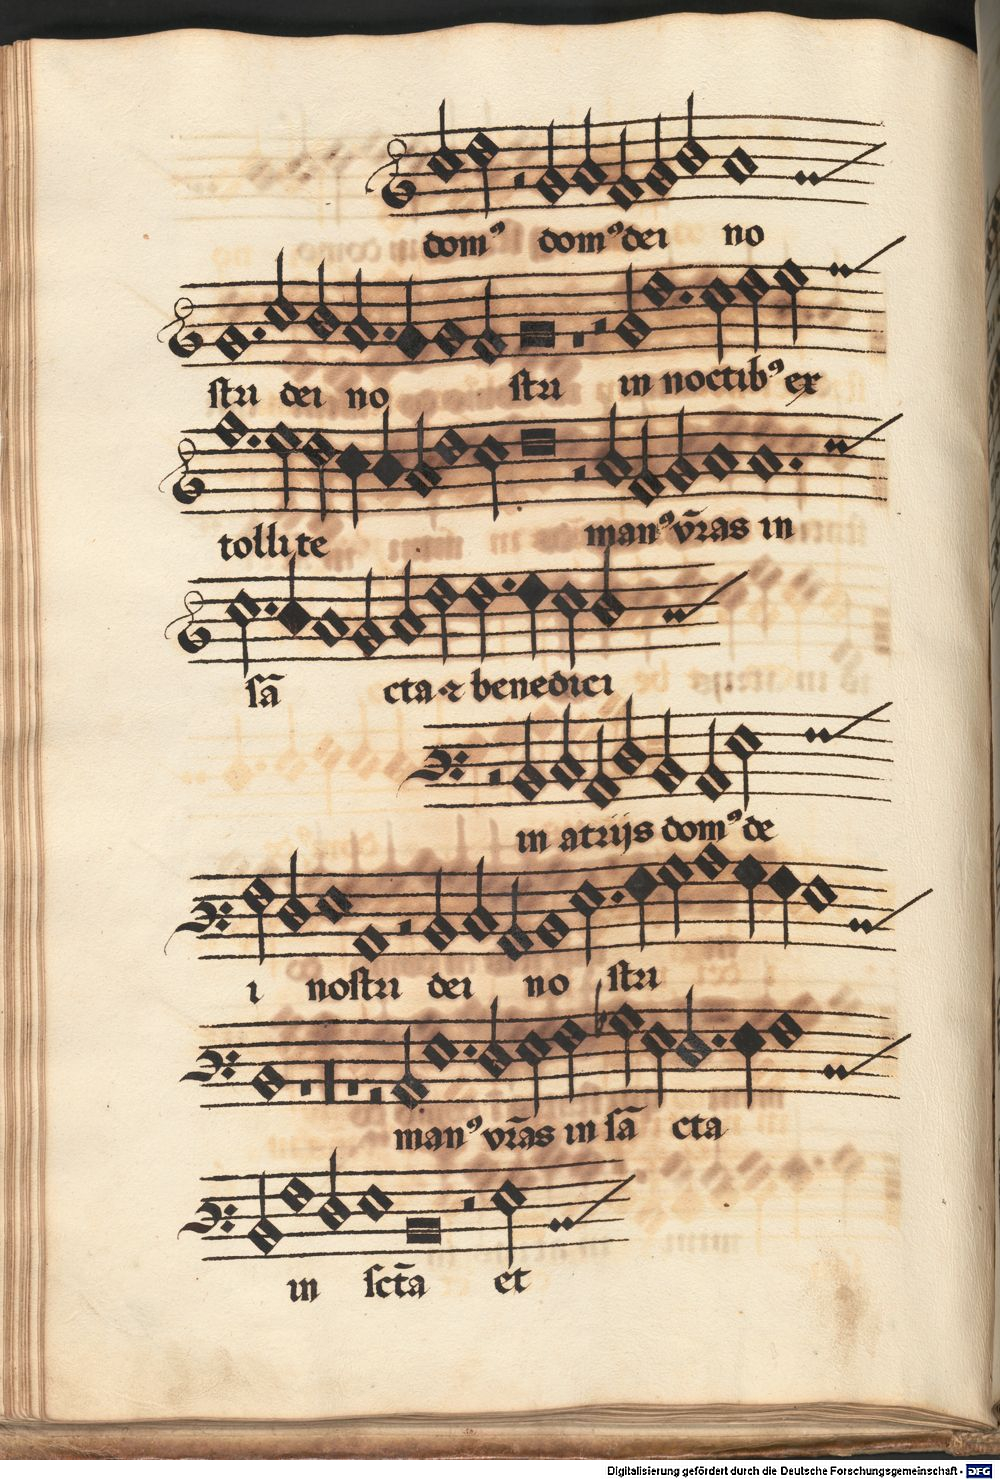 domꝰ domꝰ dei no
stri dei no stri in noctibꝰ ex
tollite manꝰ vr̄as in
sā cta ⁊ benedici
in atrijs domꝰ de
i nostri dei no stri
manꝰ vr̄as in sā cta
in sct̄a et
Digitalisierung gefördert durch die Deutsche Forschungsgemeinschaft - DFG